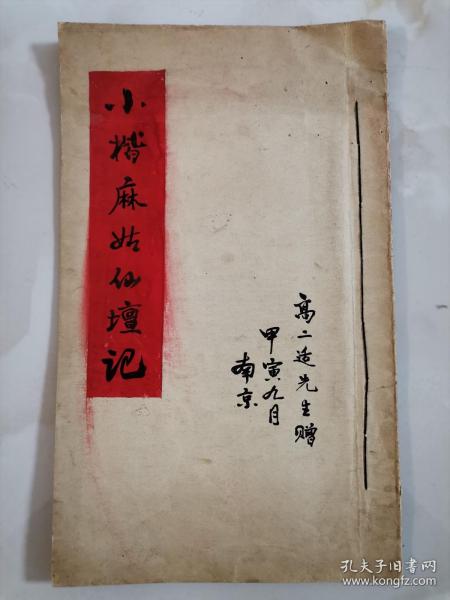 小楷麻姑仙壇记
高二适先生赠
甲寅九月
南京
孔夫子旧书网
www.kongfz.com